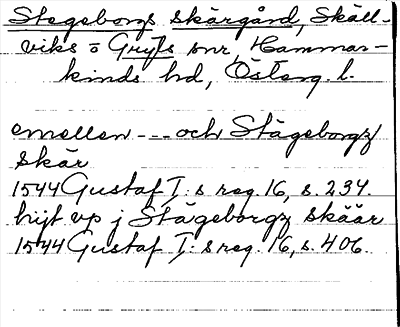 Stegeborgs skärgård, Skäll-
viks o Gryts snr, Hammar-
kinds hd, Österg. l.
emellan --- och Stägeborgz
skär
1544 Gustaf I:s reg. 16, s. 234.
hijt vp j Stägeborgz skäär
1544 Gustaf I:s reg. 16, s. 406.